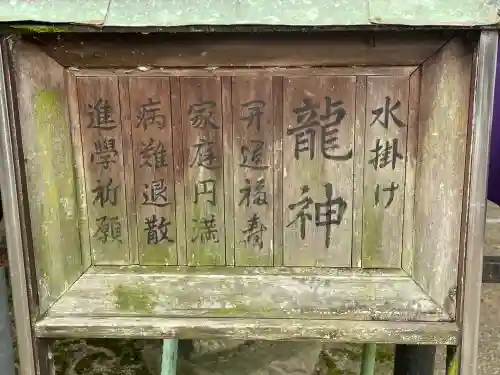 水掛け
龍神
昇道福寿
家庭円満
病難退散
進學祈願